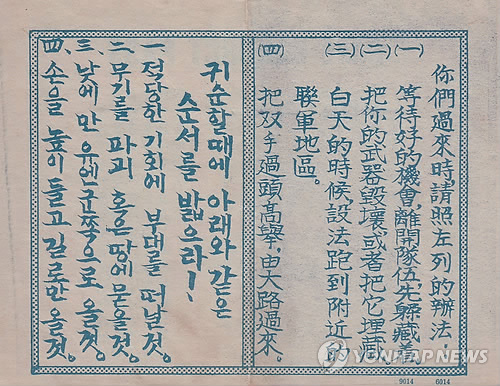 你們過來時,請照左列的辦法。
(一) 等待好的機會,離開隊伍先躱藏着
(二) 把你的武器毀壞或者把它埋藏
(三) 白天的時候,設法跑到附近的
聯軍地區。
(四) 把双手過頭高舉,由大路過來。
귀순할때에 아래와같은
순서를 밟으라!
一、적당한 기회에 부대를 떠날것。
二、무기를 파괴 혹은 땅에 묻을것。
三、낮에만 유엔군쪽으로 올것。
四、손을 높이 들고 길로만 올것。
YONHAPNEWS
9014 6014